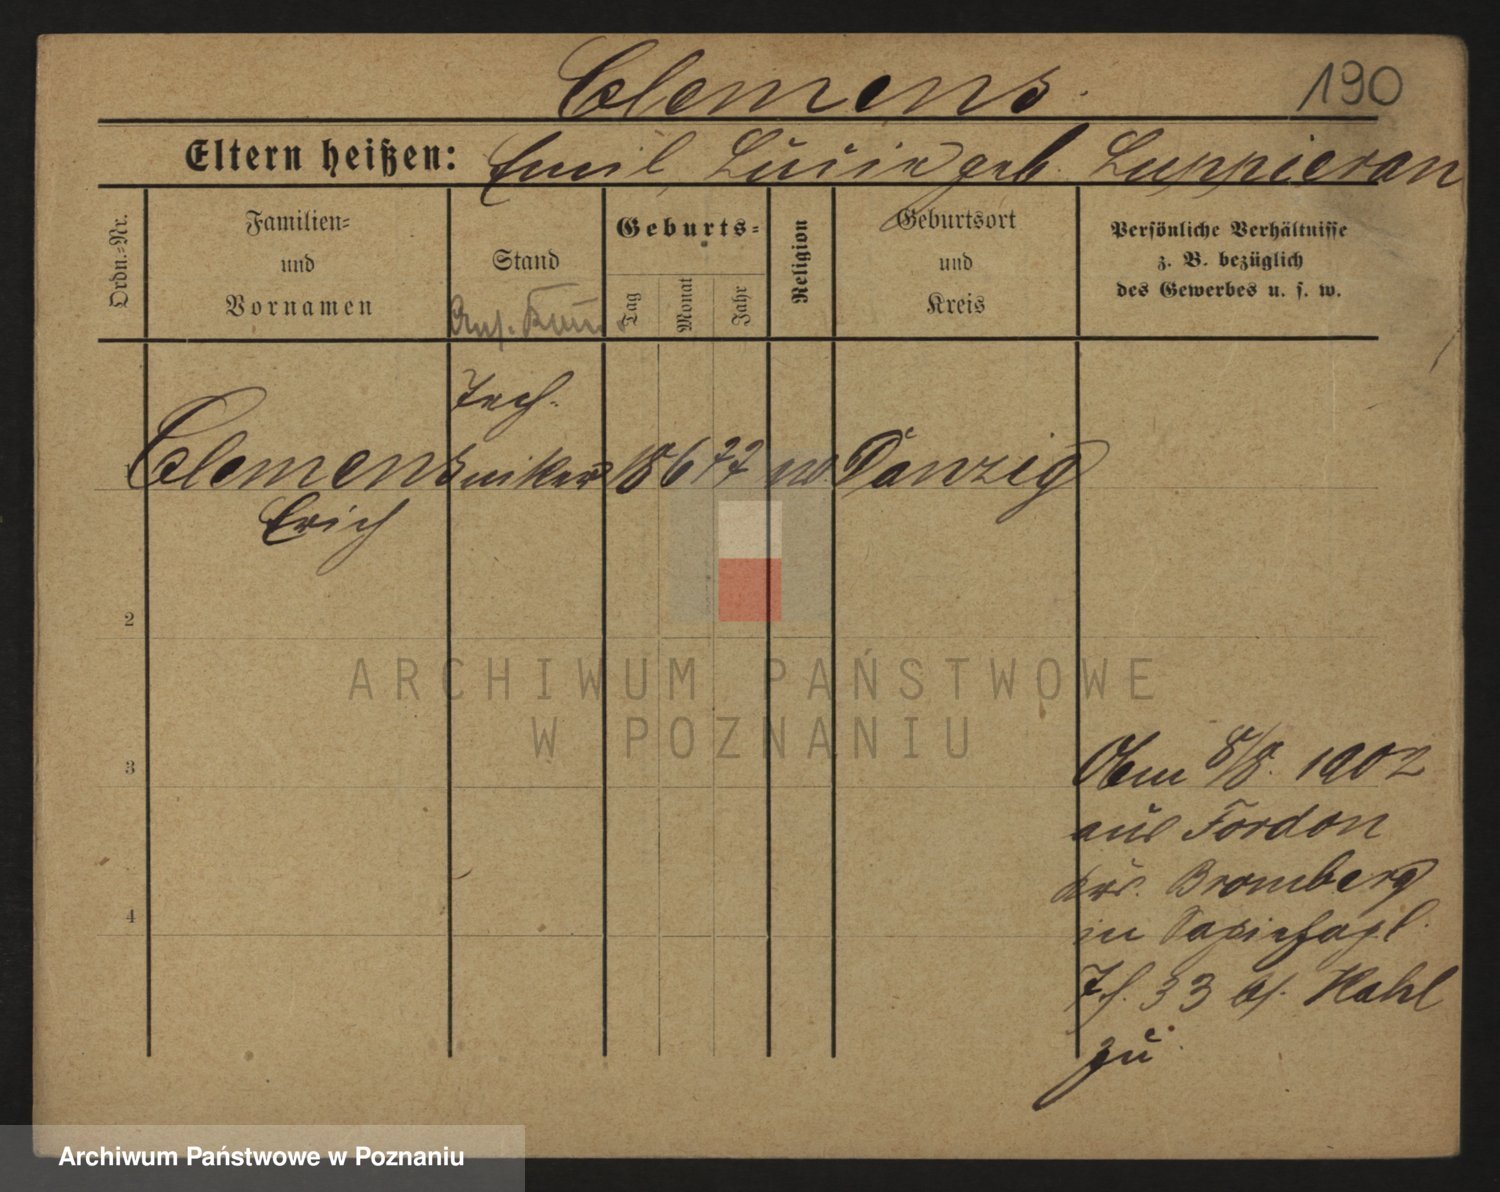 Clemens.
190
Eltern heißen: Emil, Lucie geb. Luppieran
Ordn.=Nr.
Familien=
und
Vornamen
Stand
Geburts=
Tag
Monat
Jahr
Religion
Geburtsort
und
Kreis
Persönliche Verhältnisse
z. B. bezüglich
des Gewerbes u. s. w.
Tech-
1 Clemens niker 18 6 77 Danzig
Erich
2
3
4
8/8. 1902
aus Fordon
Krs. Bromberg
in
33 bei Kahl
zu
ARCHIWUM PAŃSTWOWE
W POZNANIU
Archiwum Państwowe w Poznaniu